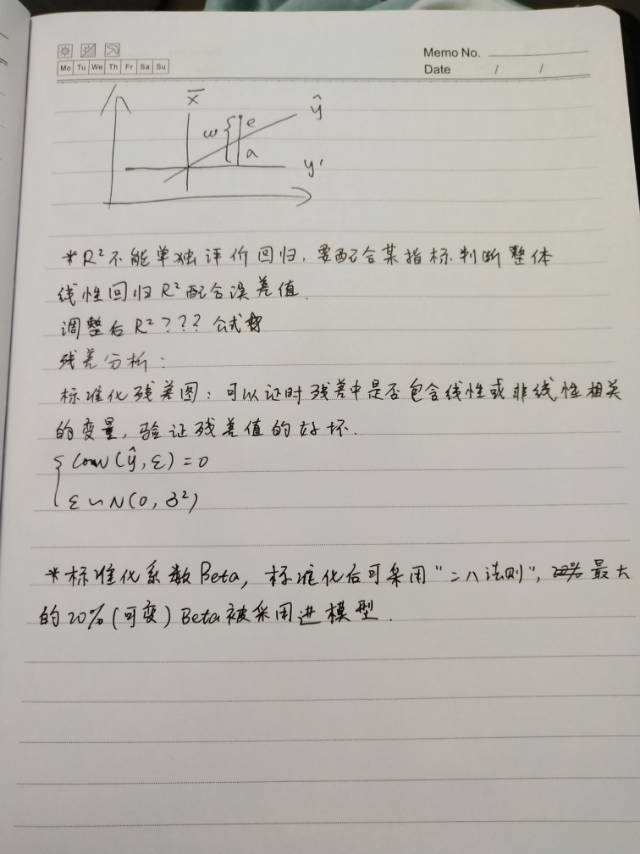 Memo No.
Mo Tu We Th Fr Sa Su
Date / /
x̅
ŷ
w
e
a
y'
*R²不能单独评价回归,要配合某指标判断整体
线性回归R²配合误差值.
调整后R²??? 公式
残差分析:
标准化残差图:可以证时残差中是否包含线性或非线性相关
的变量,验证残差值的好坏.
{ Conv(ŷ,ε)=0
ε∽N(0,δ²)
*标准化系数Beta,标准化后可采用"二八法则",最大
的20%(可变)Beta被采用进模型.